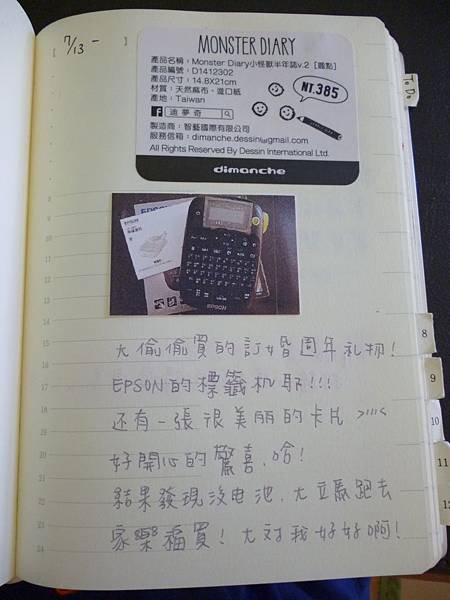 7/13 -
MONSTER DIARY
產品名稱：Monster Diary小怪獸半年誌v.2 [圓點]
產品編號：D1412302
產品尺寸：14.8X21cm
材質：天然麻布、道口紙
產地：Taiwan
NT.385
迪夢奇
製造商：智藝國際有限公司
服務信箱：dimanche.dessin@gmail.com
All Rights Reserved By Dessin International Ltd.
dimanche
To Do
EPSON
EPSON
8
9
10
11
12
大偷偷買的訂婚周年礼物!
EPSON的標籤机耶!!!
还有一張很美丽的卡片 >///<
好開心的驚喜、哈!
結果發現沒电池，大立馬跑去
家樂福買! 大对我好好啊!